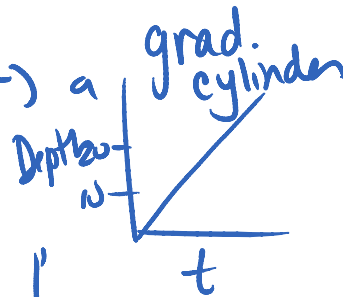 a grad.
cylinder
Depth 20
10
t